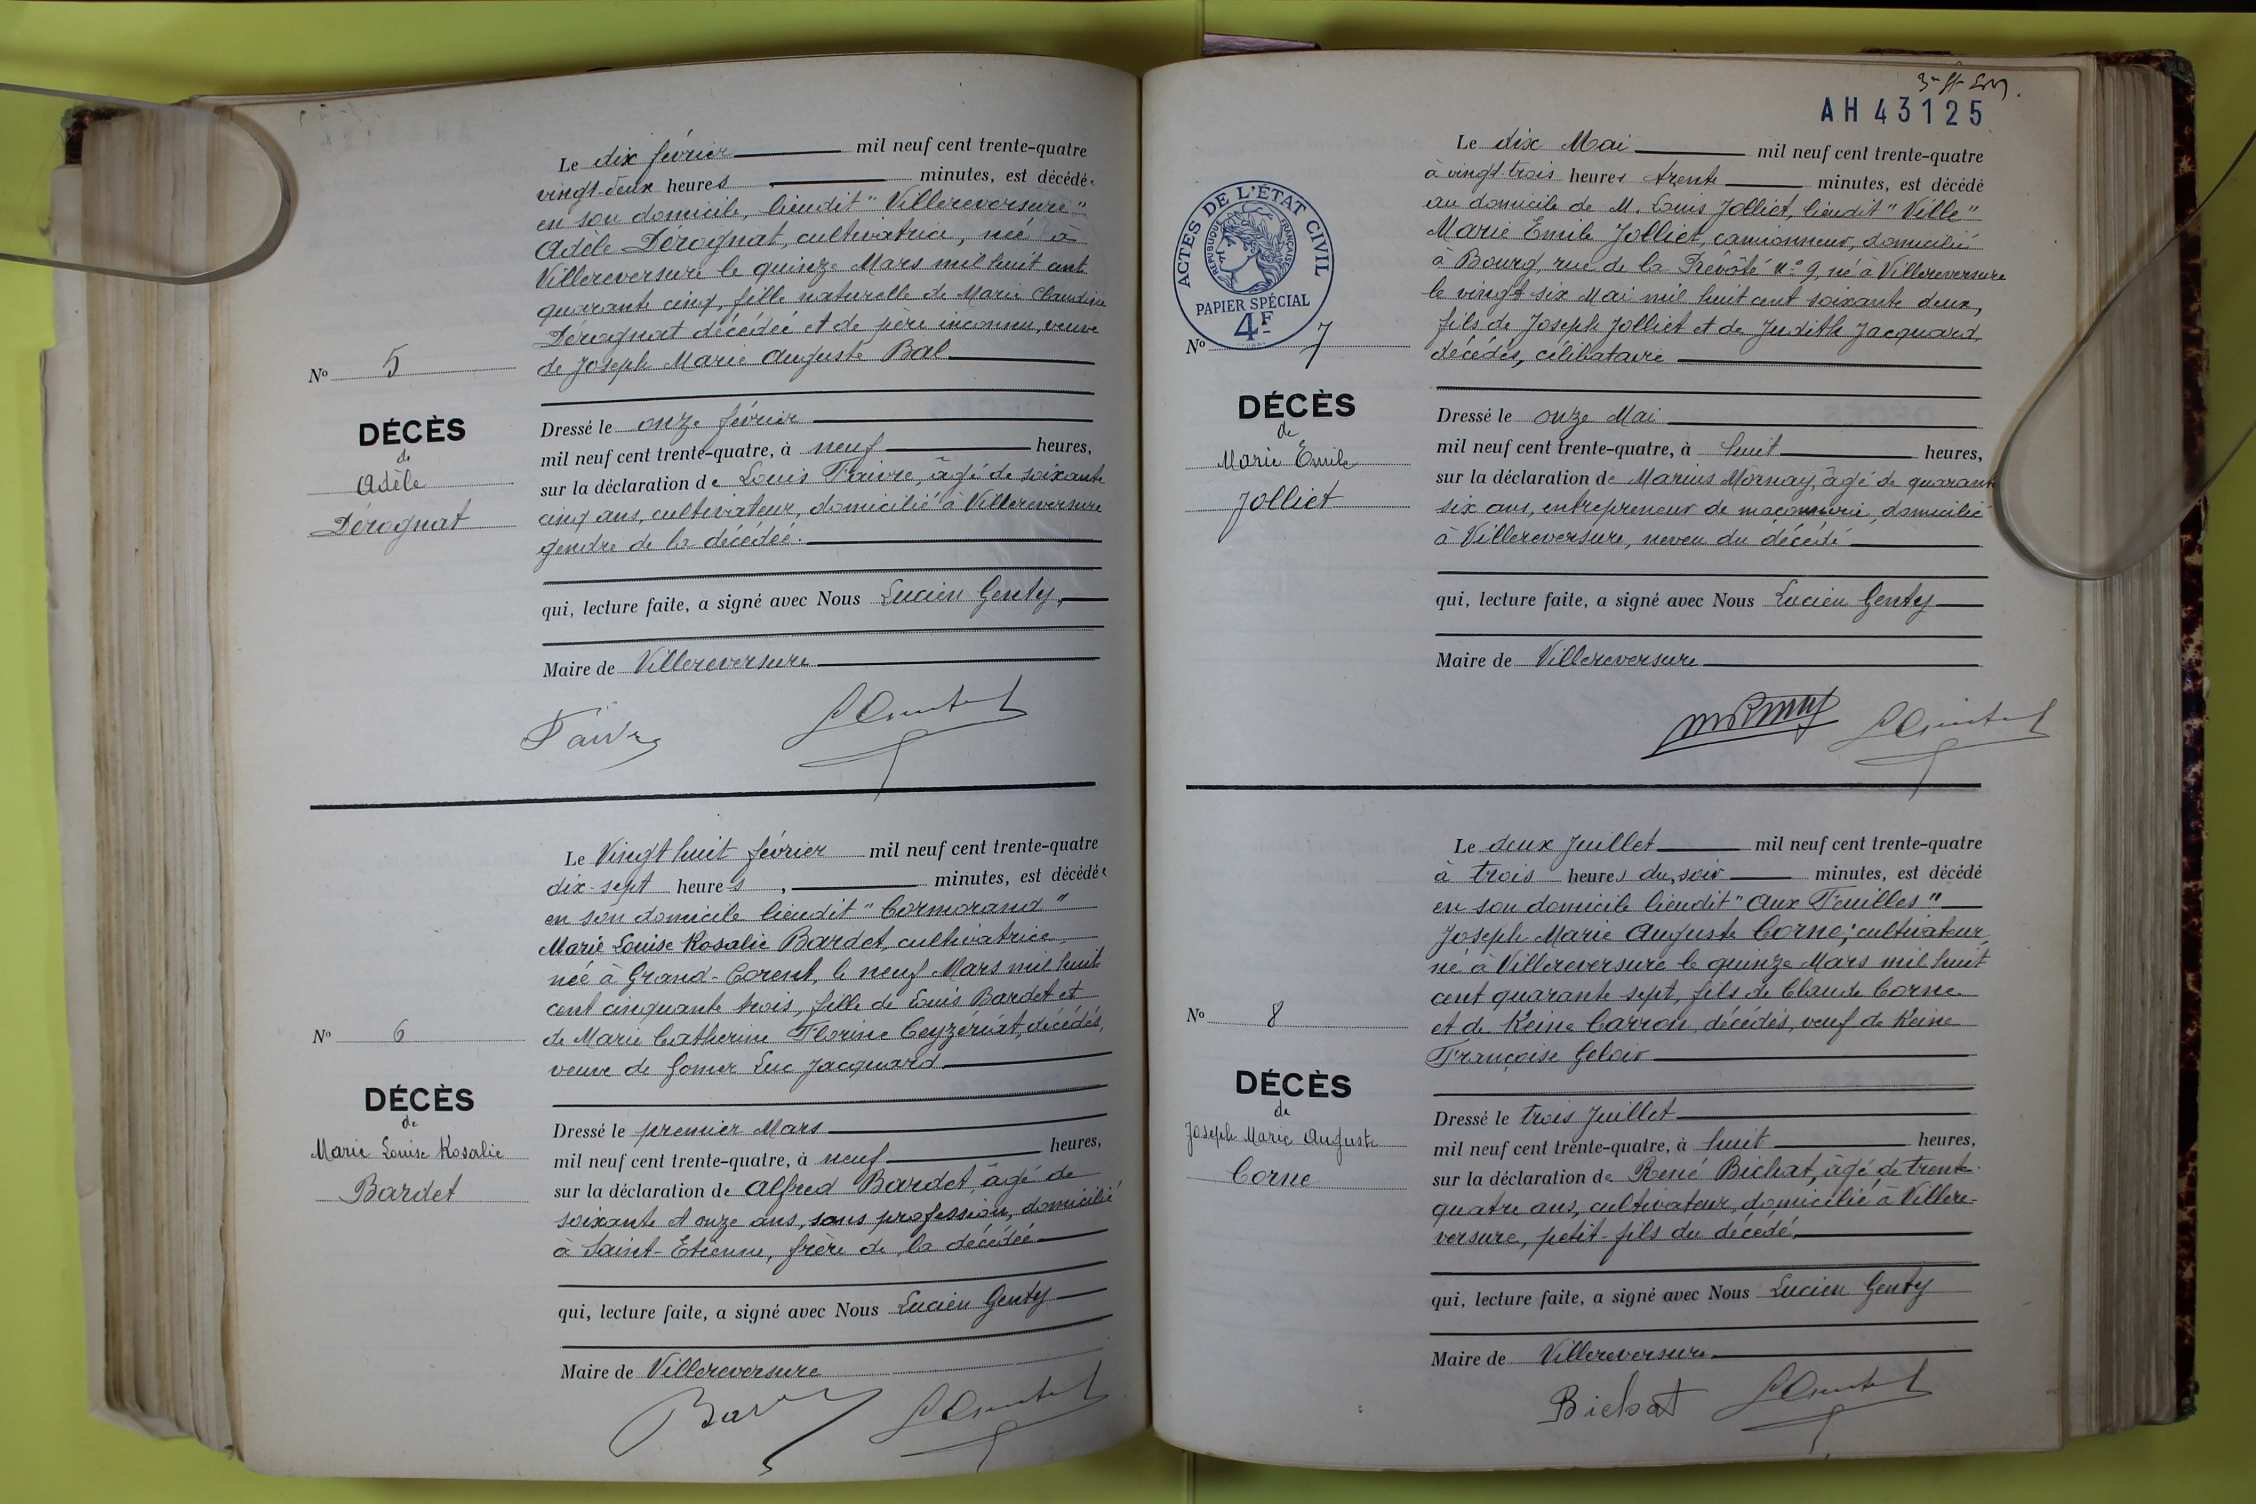 Le dix février mil neuf cent trente-quatre
vingt-deux heures minutes, est décédée
en son domicile, lieudit "Villereversure"
Adèle Dérognat, cultivatrice, née à
Villereversure le quinze Mars mil huit cent
quarante cinq, fille naturelle de Marie Claudine
Dérognat décédée et de père inconnu, veuve
de Joseph Marie Auguste Bal
No 5
DÉCÈS
de
Adèle
Dérognat
Dressé le onze février
mil neuf cent trente-quatre, à neuf heures,
sur la déclaration de Louis Faivre, âgé de soixante
cinq ans, cultivateur, domicilié à Villereversure
gendre de la décédée.
qui, lecture faite, a signé avec Nous Lucien Genty,
Maire de Villereversure
Faivre
Le Vingt huit février mil neuf cent trente-quatre
dix-sept heures, minutes, est décédée
en son domicile lieudit "Cormorand"
Marie Louise Rosalie Bardet, cultivatrice,
née à Grand-Corent, le neuf Mars mil huit
cent cinquante trois, fille de Louis Bardet et
de Marie Catherine Florine Ceyzériat, décédés,
veuve de Gomer Luc Jacquard
No 6
DÉCÈS
de
Marie Louise Rosalie
Bardet
Dressé le premier Mars
mil neuf cent trente-quatre, à neuf heures,
sur la déclaration de Alfred Bardet, âgé de
soixante et onze ans, sans profession, domicilié
à Saint-Etienne, frère de la décédée
qui, lecture faite, a signé avec Nous Lucien Genty
Maire de Villereversure
AH 43125
ACTES DE L'ÉTAT CIVIL
RÉPUBLIQUE FRANÇAISE
PAPIER SPÉCIAL
4F
Le dix Mai mil neuf cent trente-quatre
à vingt-trois heures trente minutes, est décédé
au domicile de M. Louis Jolliet, lieudit "Ville"
Marie Emile Jolliet, camionneur, domicilié
à Bourg, rue de la Prévôté n° 9, né à Villereversure
le vingt six Mai mil huit cent soixante deux,
fils de Joseph Jolliet et de Judith Jacquard,
décédés, célibataire
No 7
DÉCÈS
de
Marie Emile
Jolliet
Dressé le onze Mai
mil neuf cent trente-quatre, à huit heures,
sur la déclaration de Marius Mornay, âgé de quarante
six ans, entrepreneur de maçonnerie, domicilié
à Villereversure, neveu du décédé
qui, lecture faite, a signé avec Nous Lucien Genty
Maire de Villereversure
Le deux Juillet mil neuf cent trente-quatre
à trois heures du soir minutes, est décédé
en son domicile lieudit "Aux Feuilles"
Joseph Marie Auguste Corne, cultivateur,
né à Villereversure le quinze Mars mil huit
cent quarante sept, fils de Claude Corne
et de Reine Carron, décédés, veuf de Reine
Françoise Geloir
No 8
DÉCÈS
de
Joseph Marie Auguste
Corne
Dressé le trois Juillet
mil neuf cent trente-quatre, à huit heures,
sur la déclaration de René Bichat, âgé de trente-
quatre ans, cultivateur, domicilié à Villere-
versure, petit-fils du décédé,
qui, lecture faite, a signé avec Nous Lucien Genty
Maire de Villereversure
Bichat